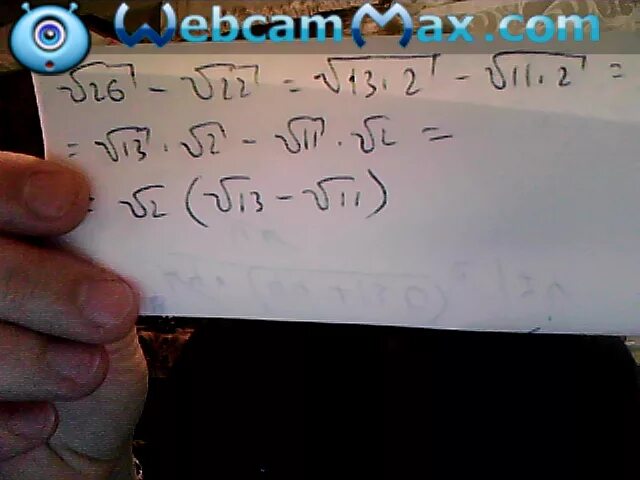 WebcamMax.com
√26 - √22 = √13·2 - √11·2 =
= √13 · √2 - √11 · √2 =
= √2 (√13 - √11)